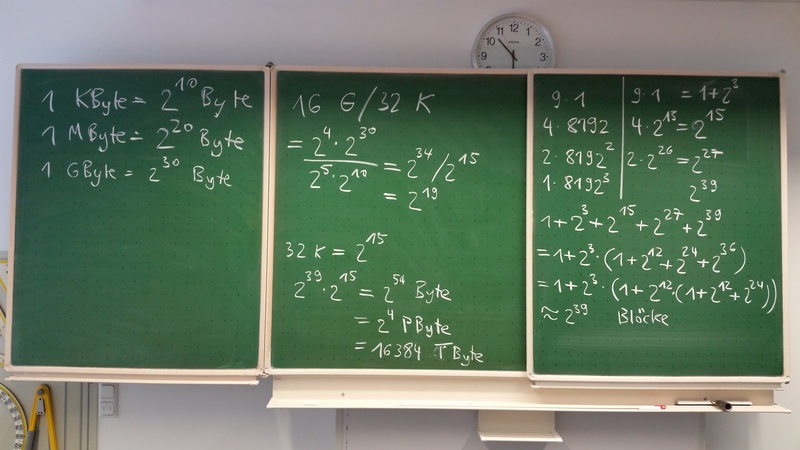 1 KByte = 2^10 Byte
1 MByte = 2^20 Byte
1 GByte = 2^30 Byte
16 G/32 K
= 2^4 · 2^30 / 2^5 · 2^10 = 2^34 / 2^15
= 2^19
32 K = 2^15
2^39 · 2^15 = 2^54 Byte
= 2^4 PByte
= 16384 TByte
9 · 1 | 9 · 1 = 1+2^3
4 · 8192 | 4 · 2^13 = 2^15
2 · 8192^2 | 2 · 2^26 = 2^27
1 · 8192^3 | 2^39
1 + 2^3 + 2^15 + 2^27 + 2^39
= 1 + 2^3 · (1 + 2^12 + 2^24 + 2^36)
= 1 + 2^3 · (1 + 2^12 · (1 + 2^12 + 2^24))
≈ 2^39 Blöcke